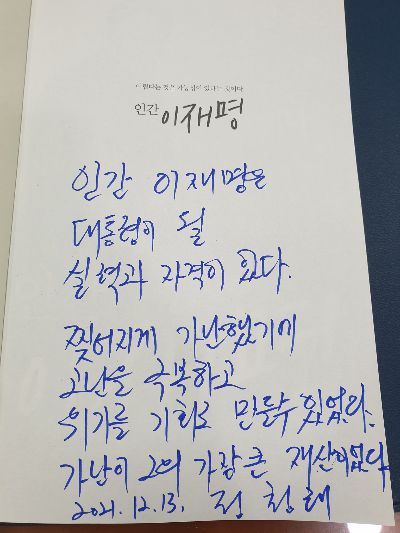 인간 이재명
인간 이재명은
대통령이 될
실력과 자격이 있다.
찢어지게 가난했기에
고난을 극복하고
위기를 기회로 만들수 있었다.
가난이 그의 가장 큰 재산이었다
2021. 12. 13. 정청래